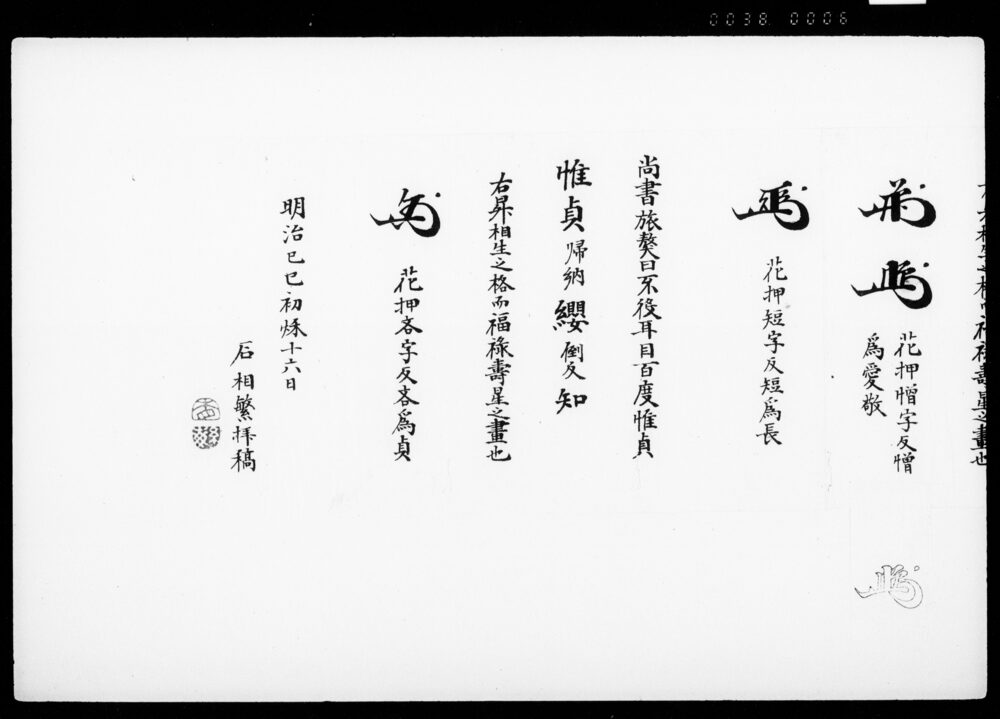 0038 0006
相生之格而福祿壽星之畫也
花押憎字反憎
爲愛敬
花押短字反短爲長
尚書旅獒曰不役耳目百度惟貞
惟貞 帰納 纓 倒反 知
右昇相生之格而福祿壽星之畫也
花押吝字反吝爲貞
明治己巳初烁十六日
石相繁拝稿